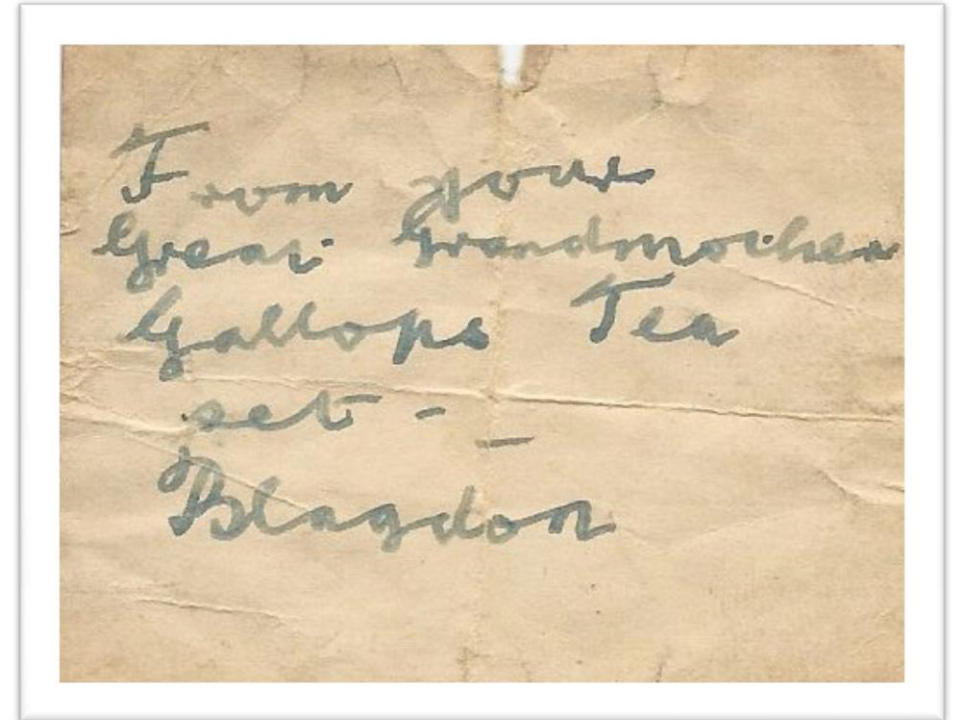 From your
Great Grandmother
Gallops Tea
set - -
Blagdon